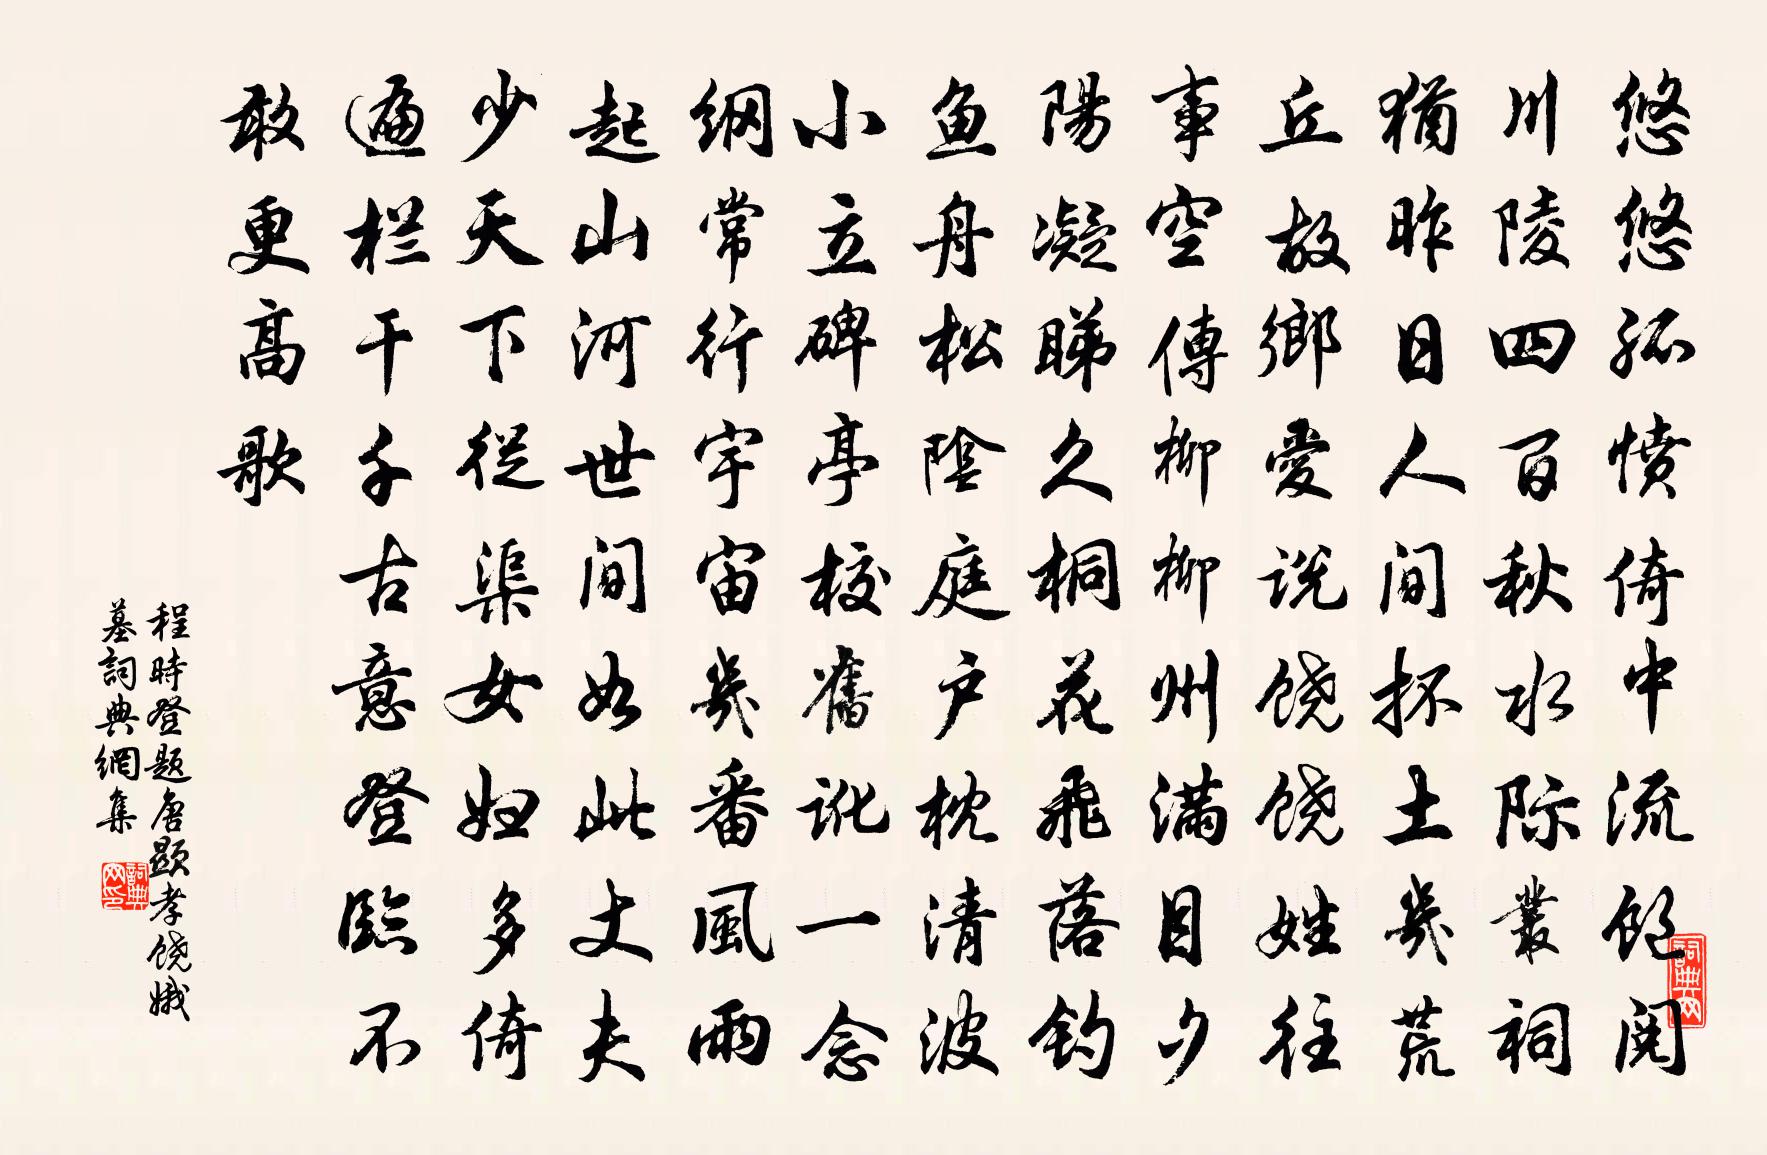 悠悠孤愤倚中流饱阅
川陵四百秋水际叢祠
猶昨日人间抔土幾荒
丘故鄉愛说饶饶姓往
事空傳柳柳州满目夕
陽凝睇久桐花飛落钓
鱼舟松陰庭户枕清波
小立碑亭校舊讹一念
纲常行宇宙幾番風雨
起山河世间如此丈夫
少天下從渠女妇多倚
遍栏干千古意登臨不
敢更高歌
程時登题唐顕孝饶娥
墓詞典網集
詞典网印
詞典网